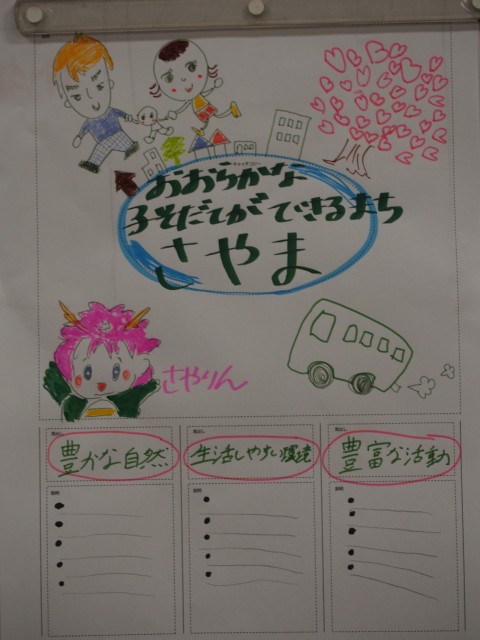 おおらかな
子そだてができるまち
さやま
さやりん
豊かな自然
生活しやすい環境
豊富な活動